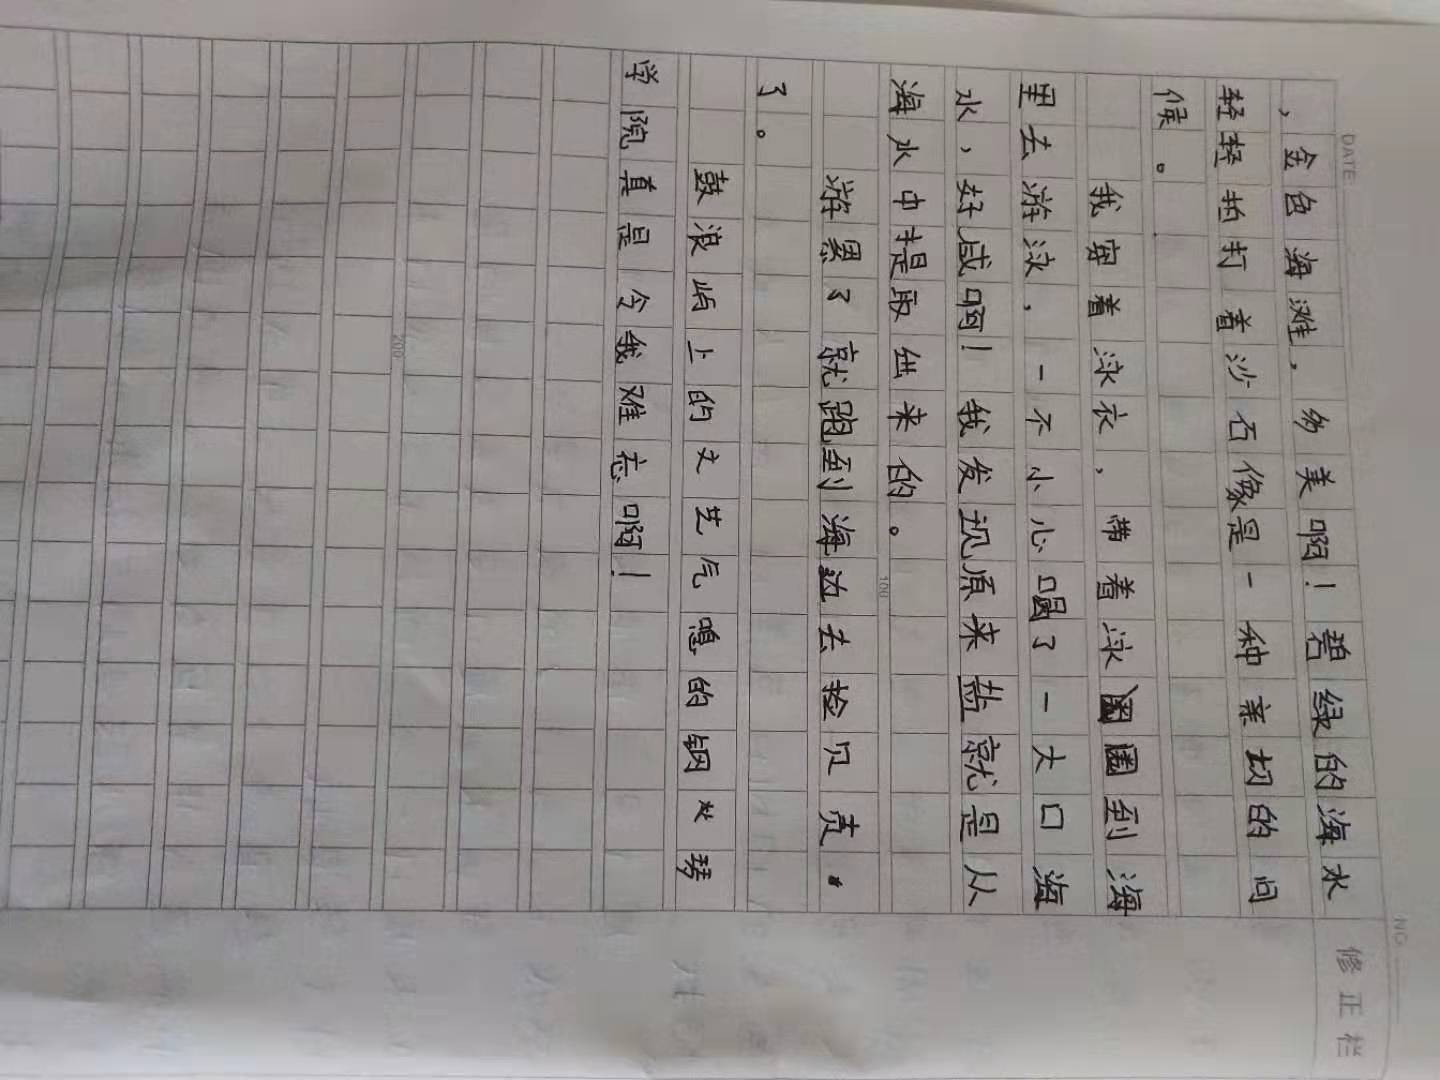 DATE
NO
修正栏
，金色海滩，多美啊！碧绿的海水
轻轻拍打着沙石像是一种亲切的问
候。
我穿着泳衣，带着泳圈到海
里去游泳，一不小心喝了一大口海
水，好咸啊！我发现原来盐就是从
海水中提取出来的。
100
游累了就跑到海边去捡贝壳。
了。
鼓浪屿上的文艺气息的钢琴
学院真是令我难忘啊！
200